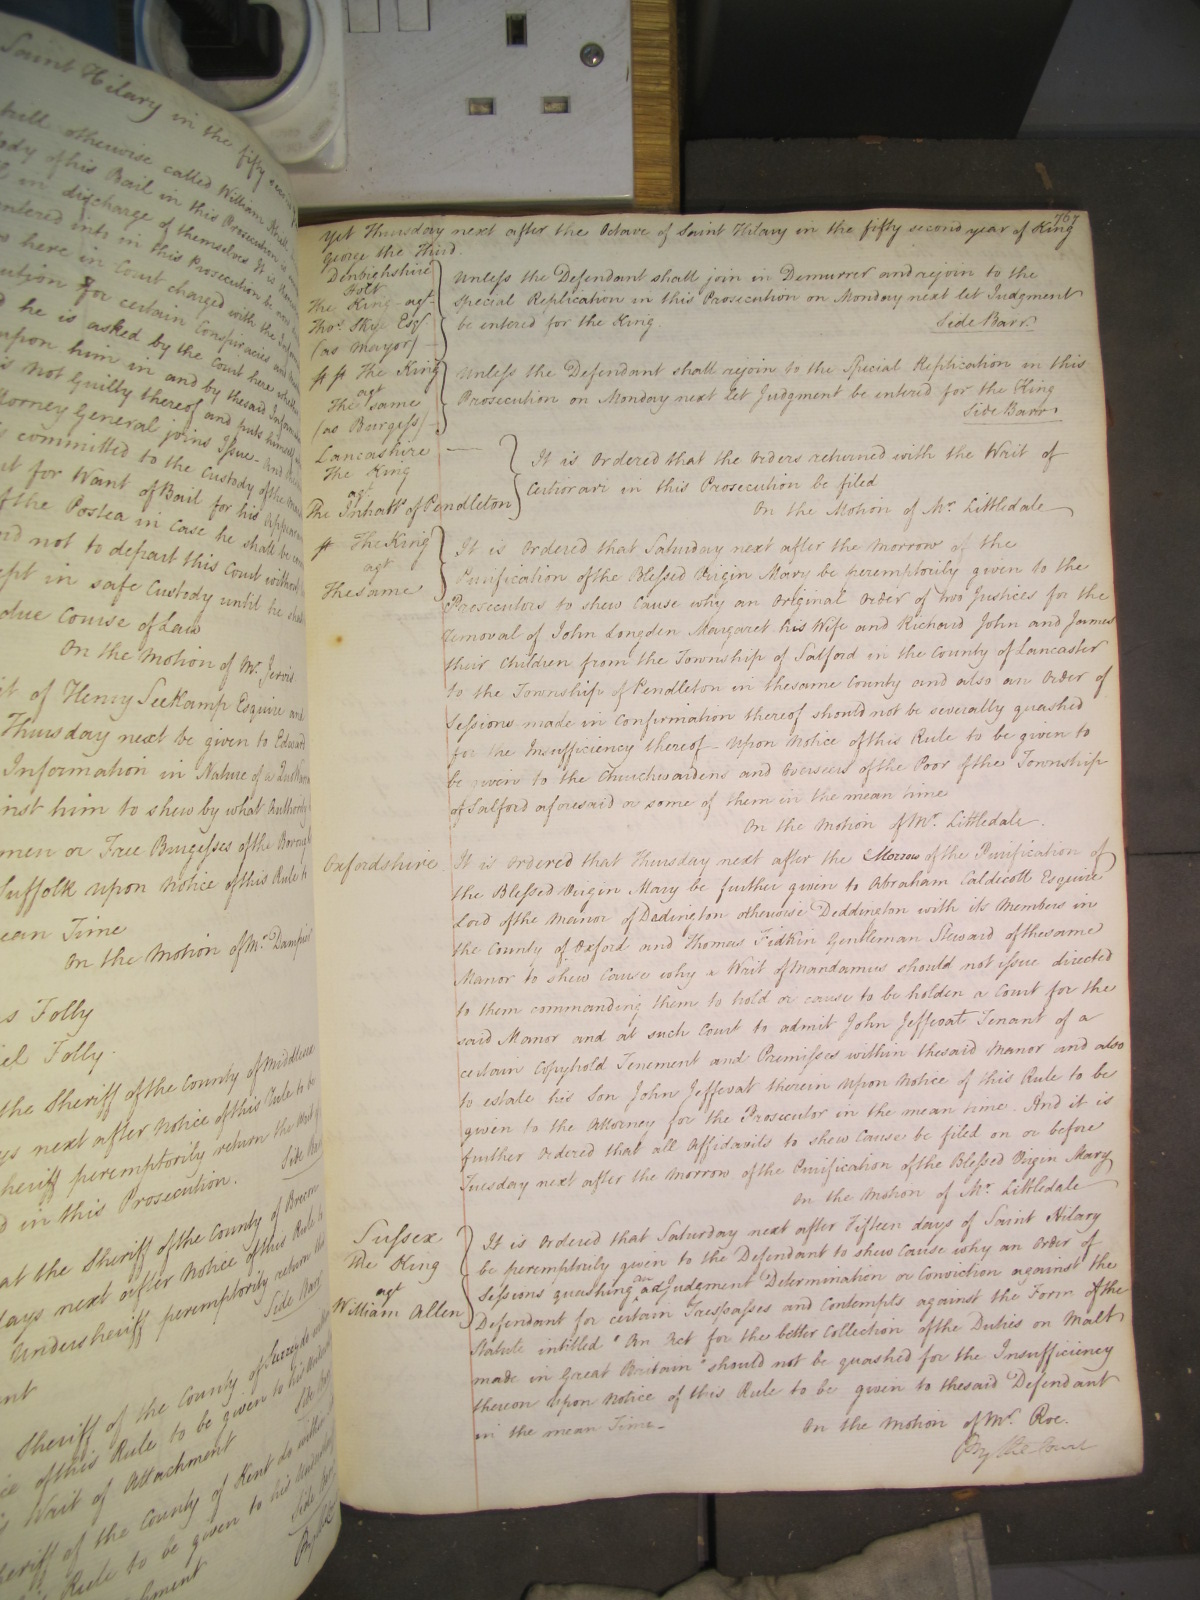 Saint Hilary in the fifty
otherwise called William
of his Bail in this Prosecution
in discharge of themselves It is
entered into in this Prosecution be
here in Court charged with the
for certain Conspiracies and
he is asked by the Court here
upon him in and by the said
is not Guilty thereof and puts himself
Attorney General joins Issue
committed to the Custody of the
for Want of Bail for his
the Postea in case he shall be
not to depart this Court without
in safe Custody until he
due Course of Law
On the Motion of Mr. Jervis
of Henry Seekamp Esquire and
Thursday next be given to Edward
Information in Nature of a
him to shew by what Authority
or Free Burgesses of the Borough
Suffolk upon Notice of this Rule to
Time
On the Motion of Mr. Dampier
Folly
Folly
the Sheriff of the County of Middlesex
next after Notice of this Rule to be
Sheriff peremptorily return the Writ of
in this Prosecution.
Side Bar
the Sheriff of the County of
days next after Notice of this Rule to
Undersheriff peremptorily return the
Side Bar
Sheriff of the County of Surrey
of this Rule to be given to his
Writ of Attachment
Side
of the County of Kent do within
Rule to be given to his
Side
767
Yet Thursday next after the Octave of Saint Hilary in the fifty second year of King
George the Third.
Denbighshire
The King agt
Thos. Skye Esqr
(as Mayor)
Unless the Defendant shall join in Demurrer and rejoin to the
Special Replication in this Prosecution on Monday next let Judgment
be entered for the King.
Side Barr.
The King
agt
The same
(as Burgess)
Unless the Defendant shall rejoin to the Special Replication in this
Prosecution on Monday next let Judgment be entered for the King
Side Barr.
Lancashire
The King
agt
The Inhabts of Pendleton
It is Ordered that the Orders returned with the Writ of
Certiorari in this Prosecution be filed
On the Motion of Mr. Littledale
The King
agt
The same
It is Ordered that Saturday next after the Morrow of the
Purification of the Blessed Virgin Mary be peremptorily given to the
Prosecutors to shew Cause why an Original Order of two Justices for the
removal of John Longden Margaret his Wife and Richard John and James
their Children from the Township of Salford in the County of Lancaster
to the Township of Pendleton in the same County and also an Order of
Sessions made in Confirmation thereof should not be severally quashed
for the Insufficiency thereof Upon Notice of this Rule to be given to
be given to the Churchwardens and Overseers of the Poor of the Township
of Salford aforesaid or some of them in the mean time
On the Motion of Mr. Littledale.
Oxfordshire
It is Ordered that Thursday next after the Morrow of the Purification of
the Blessed Virgin Mary be further given to Abraham Caldecott Esquire
Lord of the Manor of Dadington otherwise Deddington with its Members in
the County of Oxford and Thomas Fidkin Gentleman Steward of the same
Manor to shew Cause why a Writ of Mandamus should not issue directed
to them commanding them to hold or cause to be holden a Court for the
said Manor and at such Court to admit John Jeffcoat Tenant of a
certain Copyhold Tenement and Premisses within the said Manor and also
to estate his Son John Jeffcoat therein Upon Notice of this Rule to be
given to the Attorney for the Prosecutor in the mean time. And it is
further Ordered that all Affidavits to shew Cause be filed on or before
Tuesday next after the Morrow of the Purification of the Blessed Virgin Mary
On the Motion of Mr. Littledale
Sussex
The King
agt
William Allen
It is Ordered that Saturday next after Fifteen days of Saint Hilary
be peremptorily given to the Defendant to shew Cause why an Order of
Sessions quashing an adjudgement Determination or Conviction against the
Defendant for certain Trespasses and Contempts against the Form of the
Statute intitled "An Act for the better Collection of the Duties on Malt
made in Great Britain" should not be quashed for the Insufficiency
thereon Upon Notice of this Rule to be given to the said Defendant
in the mean Time.
On the Motion of Mr. Roe.
By the Court